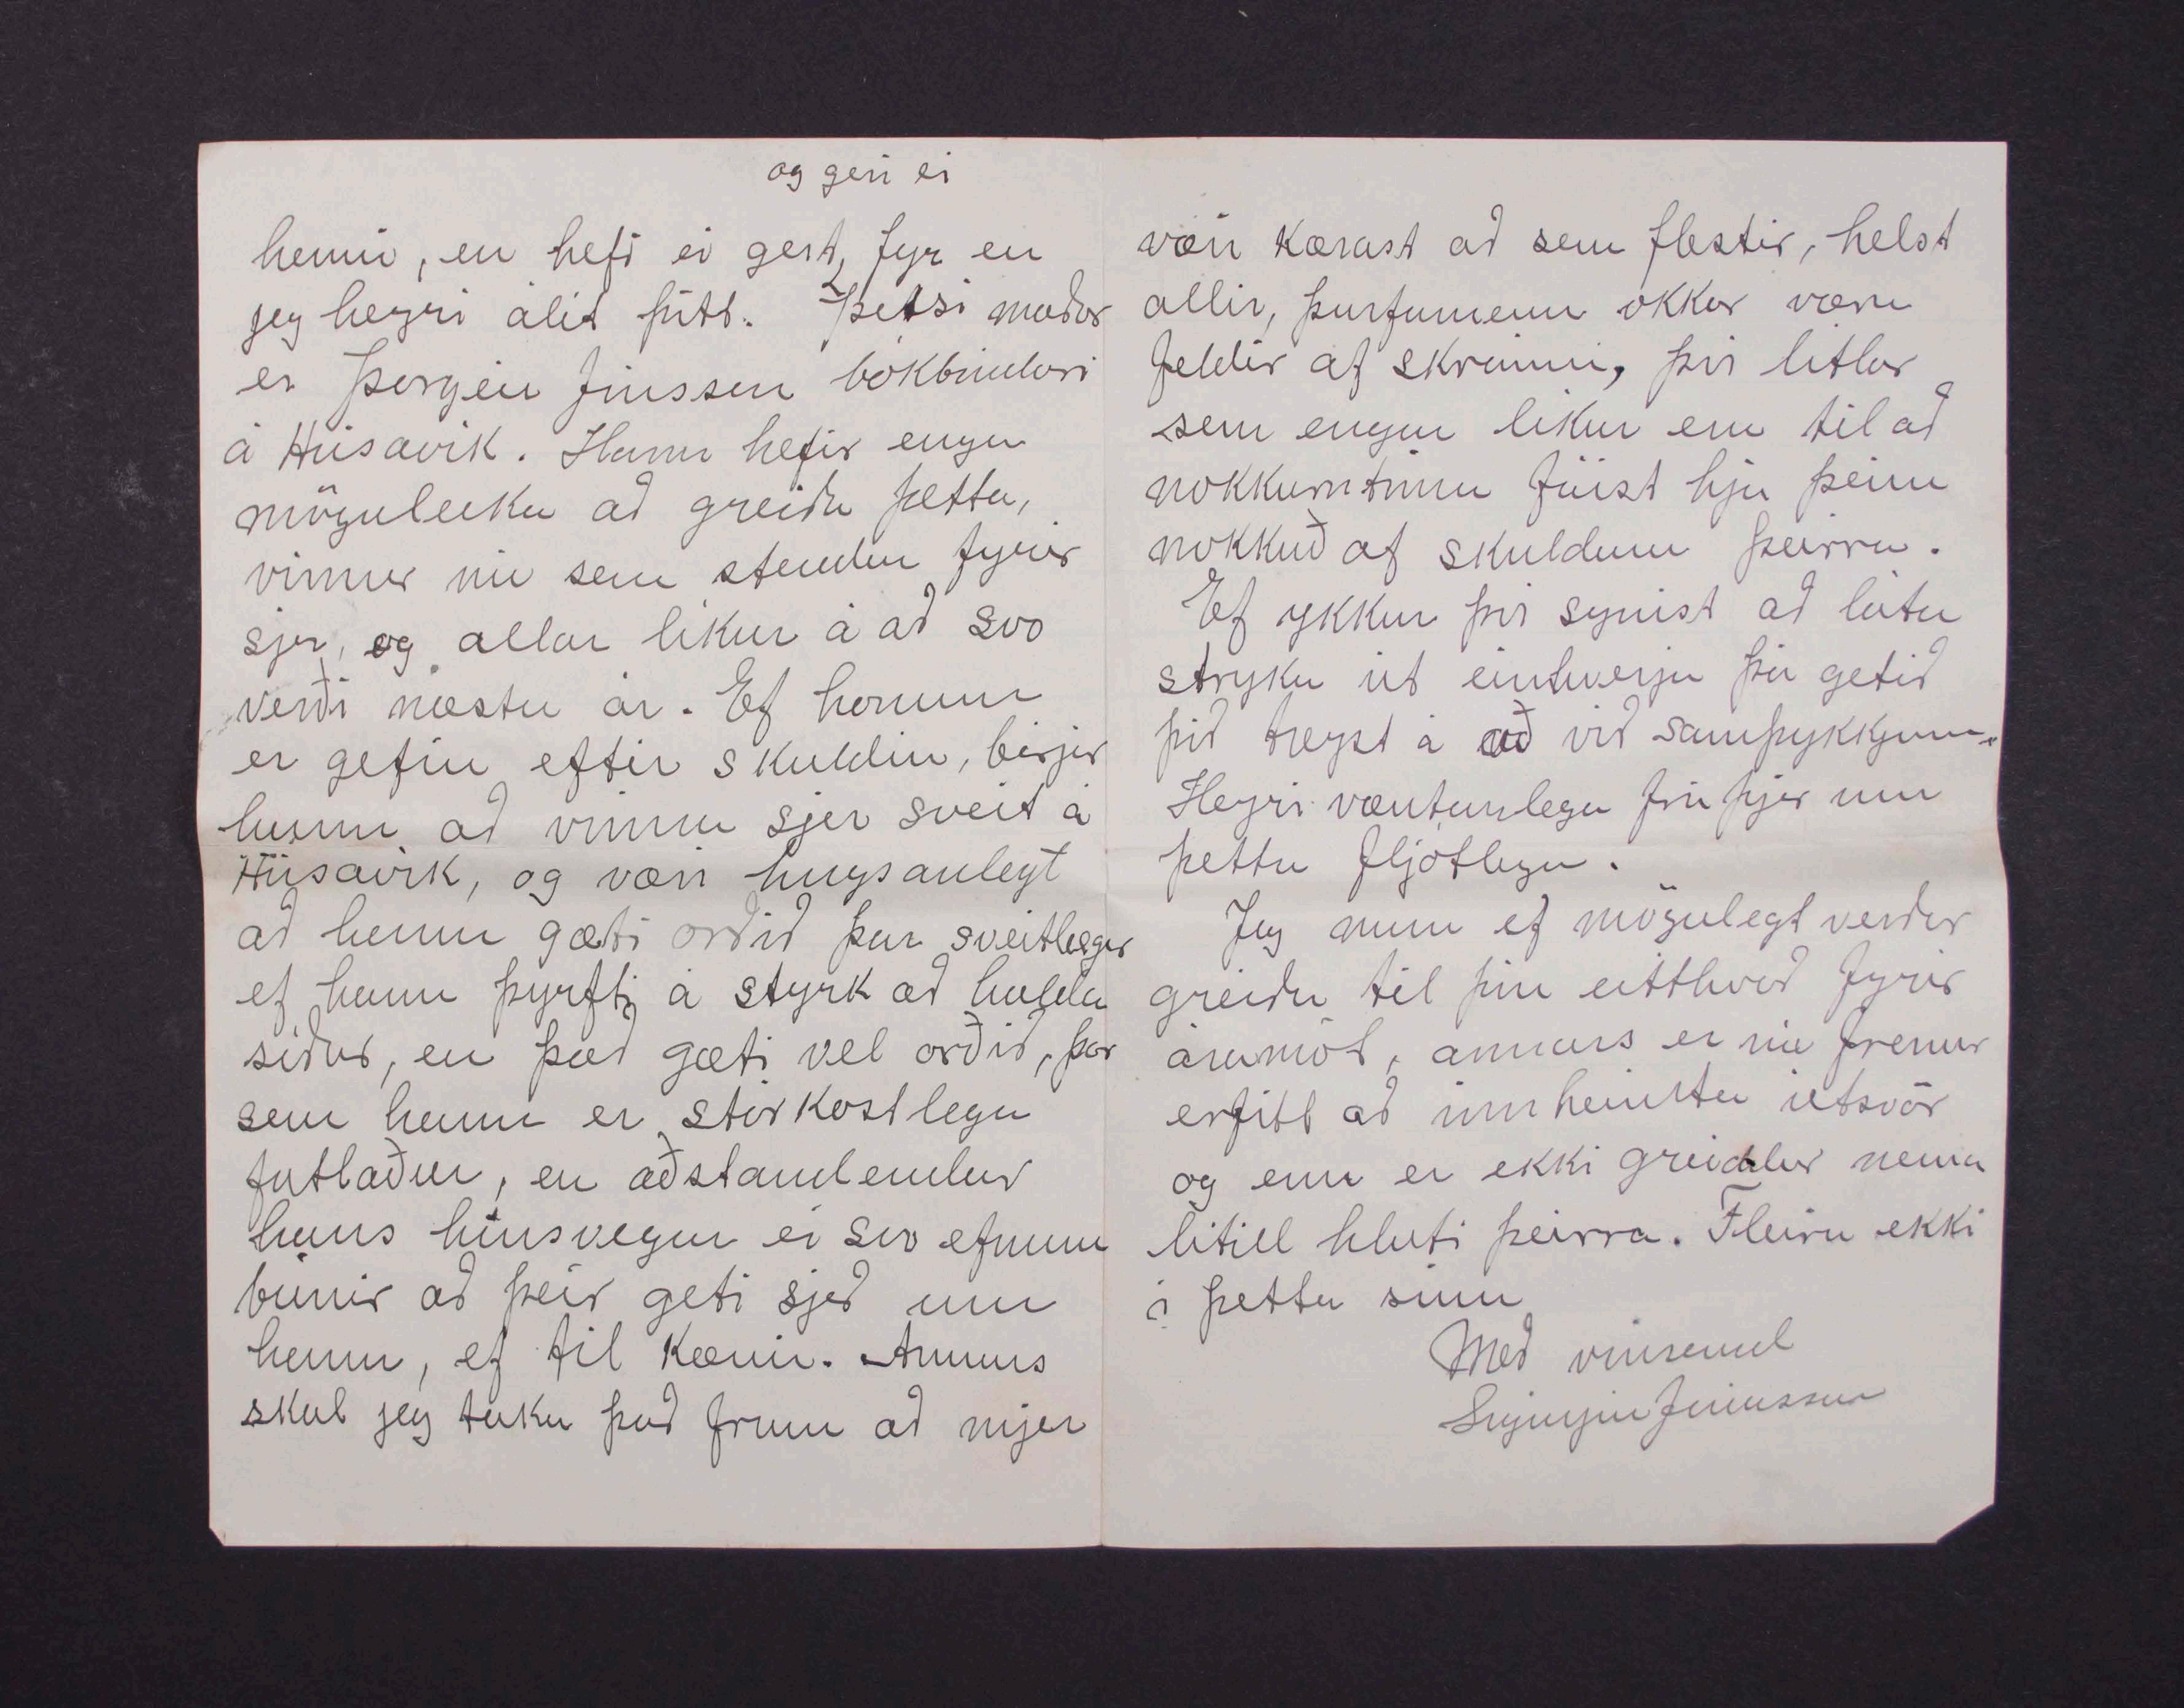 og geri ei
henni, en hefi ei gert, fyr en
jeg heyri álit þitt. Þessi maður
er Þorgeir Jónsson bókbindari
á Húsavík. Hann hefir enga
möguleika að greiða þetta,
vinnur nú sem stendur fyrir
sjer, og allar líkur á að svo
verði næstu ár. Ef honum
er gefin eftir skuldin, birjar
hann að vinna sjer sveit á
Húsavík, og væri hugsanlegt
að hann gæti orðið þar sveitlægur
ef hann þyrfti á styrk að halda
síðar, en það gæti vel orðið, þar
sem hann er stórkostlega
fatlaður, en aðstandendur
hans hinsvegar ei svo efnum
búnir að þeir geti sjeð um
hann, ef til kæmi. Annars
skal jeg taka það fram að mjer
væri kærast að sem flestir, helst
allir, þurfumenn okkar væru
feldir af skránni, þvi litlar
sem engar líkur eru til að
nokkurntíma fáist hja þeim
nokkuð af skuldum þeirra.
Ef ykkur þvi synist að láta
stryka út einhverja þá getið
þið treyst á að við samþykkjum.
Heyri væntanlega frá þjer um
þetta fljótlega.
Jeg mun ef mögulegt verður
greiða til þin eitthvað fyrir
áramót, annars er nú fremur
erfitt að innheimta útsvör
og enn er ekki greiddur nema
lítill hluti þeirra. Fleira ekki
í þetta sinn
Með vinsemd